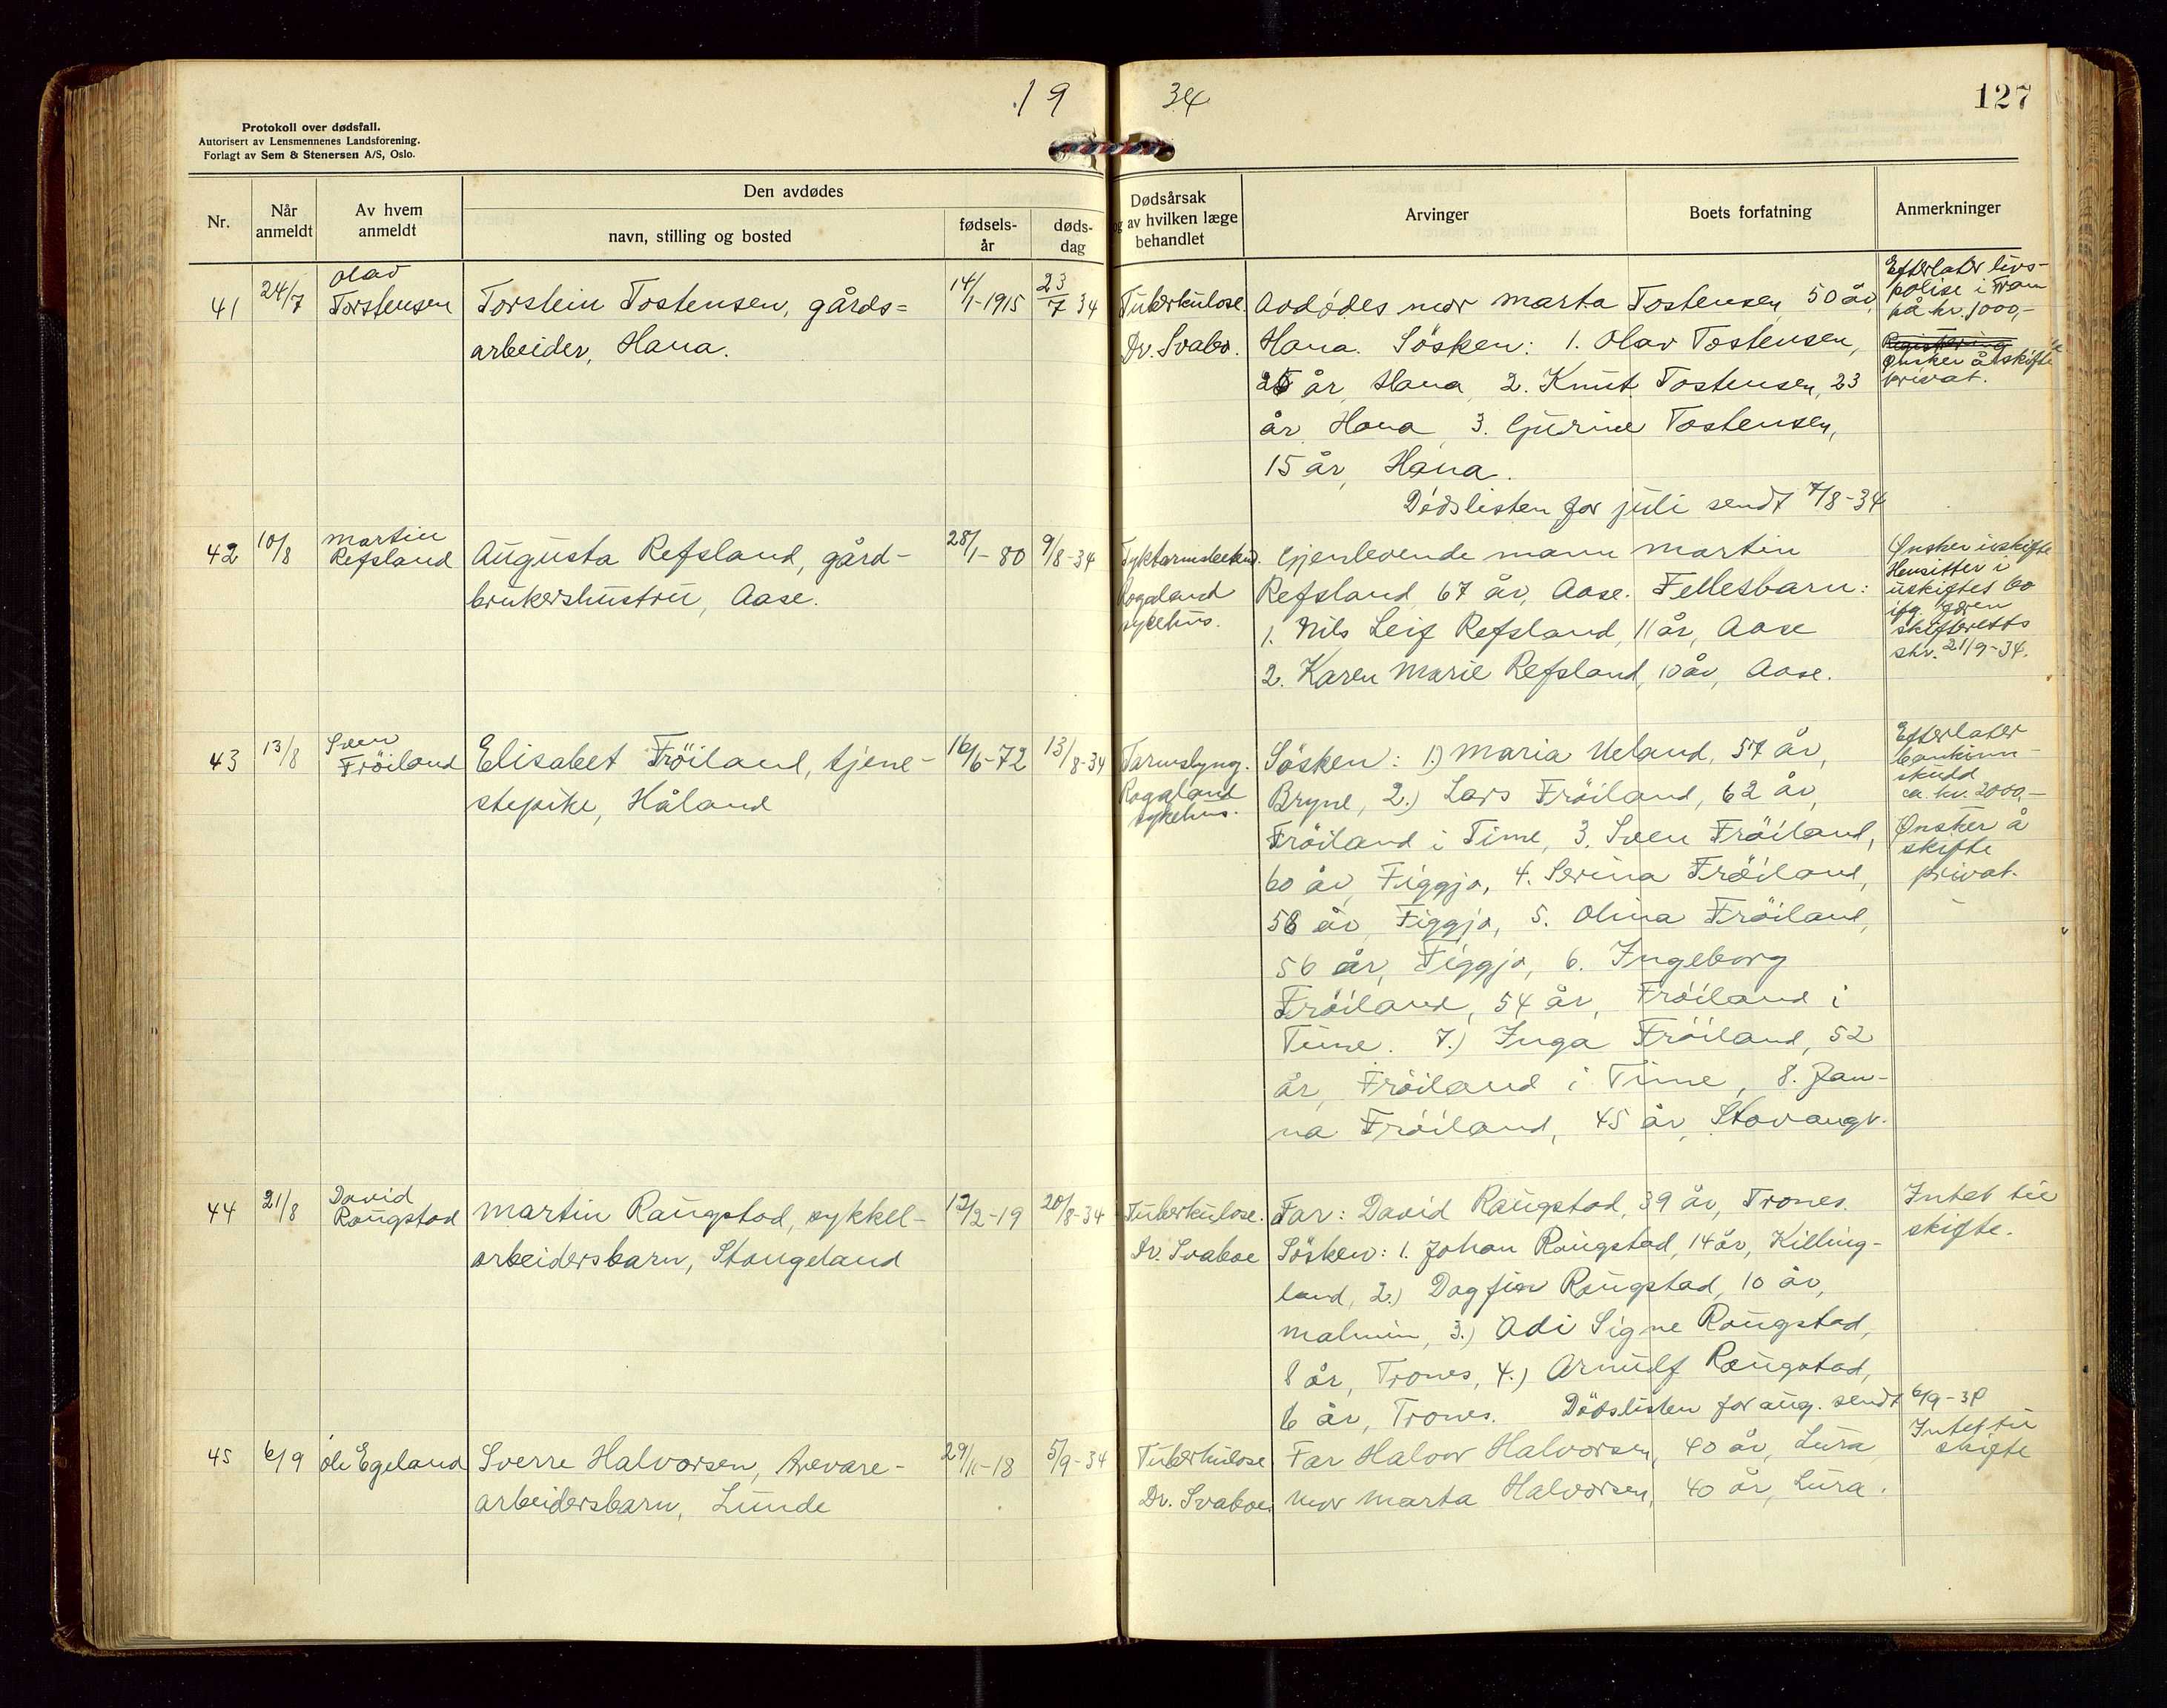 19 34
127
Protokoll over dødsfall.
Autorisert av Lensmennenes Landsforening.
Forlagt av Sem & Stenersen A/S, Oslo.
Nr.
Når anmeldt
Av hvem anmeldt
Den avdødes
navn, stilling og bosted
fødsels-år
døds-dag
Dødsårsak
og av hvilken læge
behandlet
Arvinger
Boets forfatning
Anmerkninger
41
24/7
Olav
Torstensen
Torstein Tostensen, gårds=
arbeider, Hana.
14/1-1915
23/7 34
Tuberkulose.
Dr. Svabo.
Avdødes mor Marta Tostensen, 50 år,
Hana. Søsken: 1. Olav Tostensen,
år, Hana, 2. Knut Tostensen, 23
år, Hana, 3. Gurine Tostensen,
15 år, Hana.
Dødslisten for juli sendt 7/8-34
Efterlater livs-
polise i Fram
på kr. 1000,-
Registrering
Ønsker å skifte
privat.
42
10/8
Martin
Refsland
Augusta Refsland, gård-
brukershustru, Aase.
28/1-80
9/8-34
Rogaland
sykehus.
Gjenlevende mann Martin
Refsland, 67 år, Aase. Fellesbarn:
1. Nils Leif Refsland, 11 år, Aase
2. Karen Marie Refsland, 10 år, Aase.
Ønsker uskifte
Hensitter i
uskiftet bo
ifg.
skifteretts
skr. 21/9-34.
43
13/8
Sven
Frøiland
Elisabet Frøiland, tjene-
stepike, Håland
16/6-72
13/8-34
Tarmslyng.
Rogaland
sykehus.
Søsken: 1.) Maria Ueland, 57 år,
Bryne, 2.) Lars Frøiland, 62 år,
Frøiland i Time, 3. Sven Frøiland,
60 år, Figgjo, 4. Serina Frøiland,
58 år, Figgjo, 5. Olina Frøiland,
56 år, Figgjo, 6. Ingeborg
Frøiland, 54 år, Frøiland i
Time. 7.) Inga Frøiland, 52
år, Frøiland i Time, 8. Jan-
na Frøiland, 45 år, Stavanger.
Efterlater
bankinn-
skudd
ca. kr. 2000,-
Ønsker å
skifte
privat.
44
21/8
David
Raugstad
Martin Raugstad, sykkel-
arbeidersbarn, Stangeland
12/2-19
20/8-34
Tuberkulose.
Dr. Svaboe
Far: David Raugstad, 39 år, Trones.
Søsken: 1. Johan Raugstad, 14 år, Killing-
land, 2.) Dagfin Raugstad, 10 år,
Malmin, 3.) Adi Signe Raugstad,
8 år, Trones, 4.) Arnulf Raugstad,
6 år, Trones. Dødslisten for aug. sendt 6/9-34
Intet til
skifte.
45
6/9
Ole Egeland
Sverre Halvorsen, trevare-
arbeidersbarn, Lunde
29/11-18
5/9-34
Tuberkulose
Dr. Svaboe.
Far Halvor Halvorsen, 40 år, Lura
Mor Marta Halvorsen, 40 år, Lura.
Intet til
skifte